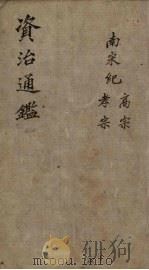 資治通鑑
南宋紀 高宗
孝宗